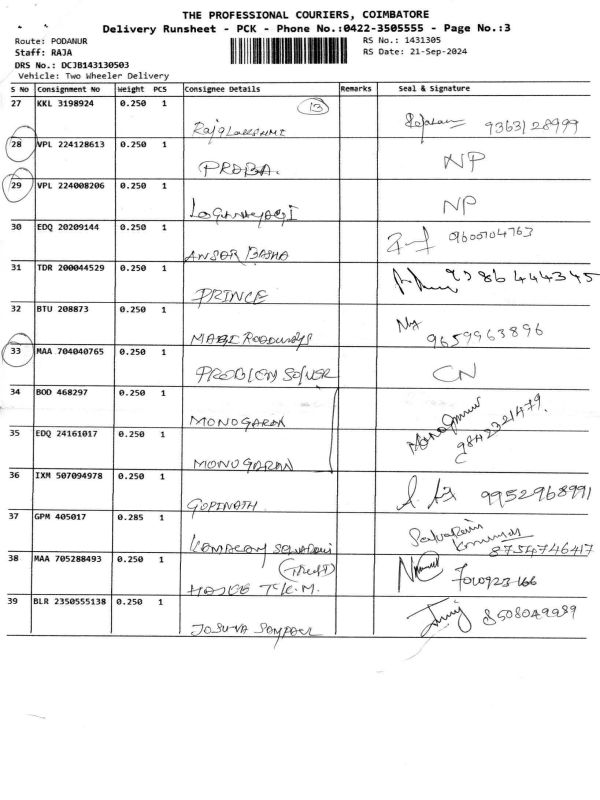 THE PROFESSIONAL COURIERS, COIMBATORE
Delivery Runsheet - PCK - Phone No.:0422-3505555 - Page No.:3
Route: PODANUR
RS No.: 1431305
Staff: RAJA
RS Date: 21-Sep-2024
DRS No.: DCJB143130503
Vehicle: Two Wheeler Delivery
S No Consignment No Weight PCS Consignee Details Remarks Seal & Signature
27 KKL 3198924 0.250 1 13
9363128999
28 VPL 224128613 0.250 1
PROBA. NP
29 VPL 224008206 0.250 1
NP
30 EDQ 20209144 0.250 1
ANSAR BASHA 9600704763
31 TDR 200044529 0.250 1
PRINCE 9786444345
32 BTU 208873 0.250 1
9659963896
33 MAA 704040765 0.250 1
PROBLEM SOLVER CN
34 BOD 468297 0.250 1
MONOGARAN
9842321479.
35 EDQ 24161017 0.250 1
MONOGARAN
36 IXM 507094978 0.250 1
GOPINATH. 9952968991
37 GPM 405017 0.285 1
8754746417
38 MAA 705288493 0.250 1
T.K.M.
39 BLR 2350555138 0.250 1
JOSUVA 8508049989